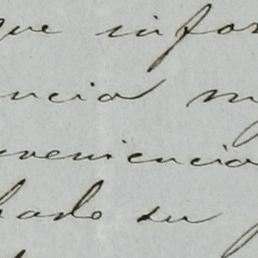 que infor
ncia m
veniencia
hado su